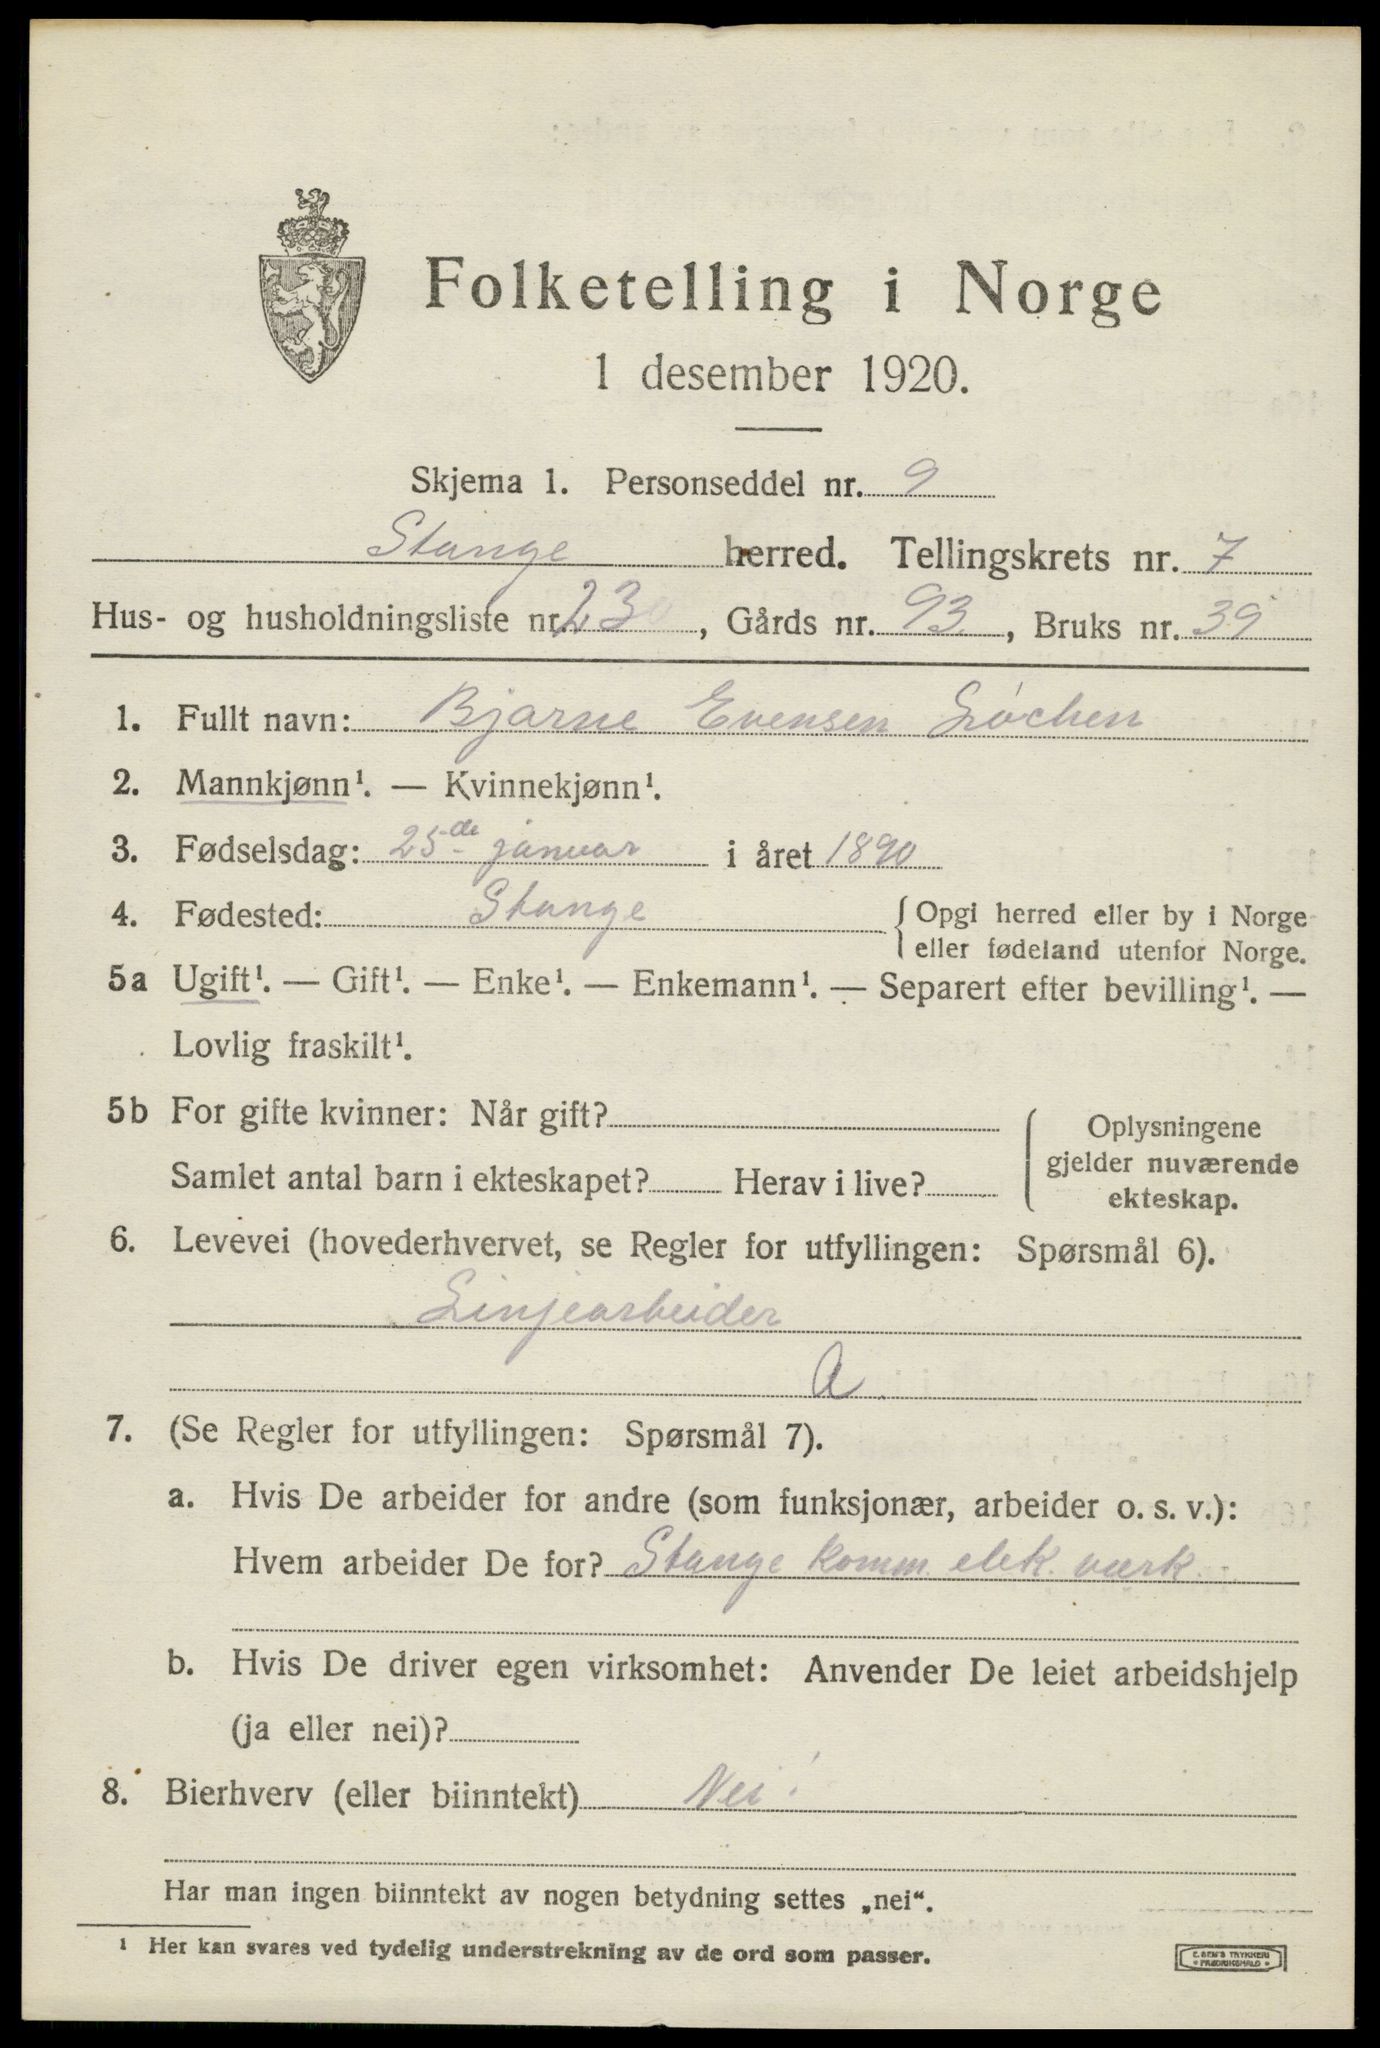 Folketelling i Norge
1 desember 1920.
Skjema 1. Personseddel nr. 9
Stange herred. Tellingskrets nr. 7
Hus- og husholdningsliste nr. 23, Gårds nr. 93, Bruks nr. 39
1. Fullt navn: Bjarne Evensen Løchen
2. Mannkjønn¹. — Kvinnekjønn¹.
3. Fødselsdag: 25de januar i året 1890
4. Fødested: Stange { Opgi herred eller by i Norge
eller fødeland utenfor Norge.
5a Ugift¹. — Gift¹. — Enke¹. — Enkemann¹. — Separert efter bevilling¹. —
Lovlig fraskilt¹.
5b For gifte kvinner: Når gift?
Samlet antal barn i ekteskapet? Herav i live?
Oplysningene
gjelder nuværende
ekteskap.
6. Levevei (hovederhvervet, se Regler for utfyllingen: Spørsmål 6).
Linjearbeider
A.
7. (Se Regler for utfyllingen: Spørsmål 7).
a. Hvis De arbeider for andre (som funksjonær, arbeider o. s. v.):
Hvem arbeider De for? Stange komm. elek. værk
b. Hvis De driver egen virksomhet: Anvender De leiet arbeidshjelp
(ja eller nei)?
8. Bierhverv (eller biinntekt) Nei
Har man ingen biinntekt av nogen betydning settes „nei“.
¹ Her kan svares ved tydelig understrekning av de ord som passer.
E. SEM'S TRYKKERI
FREDRIKSHALD